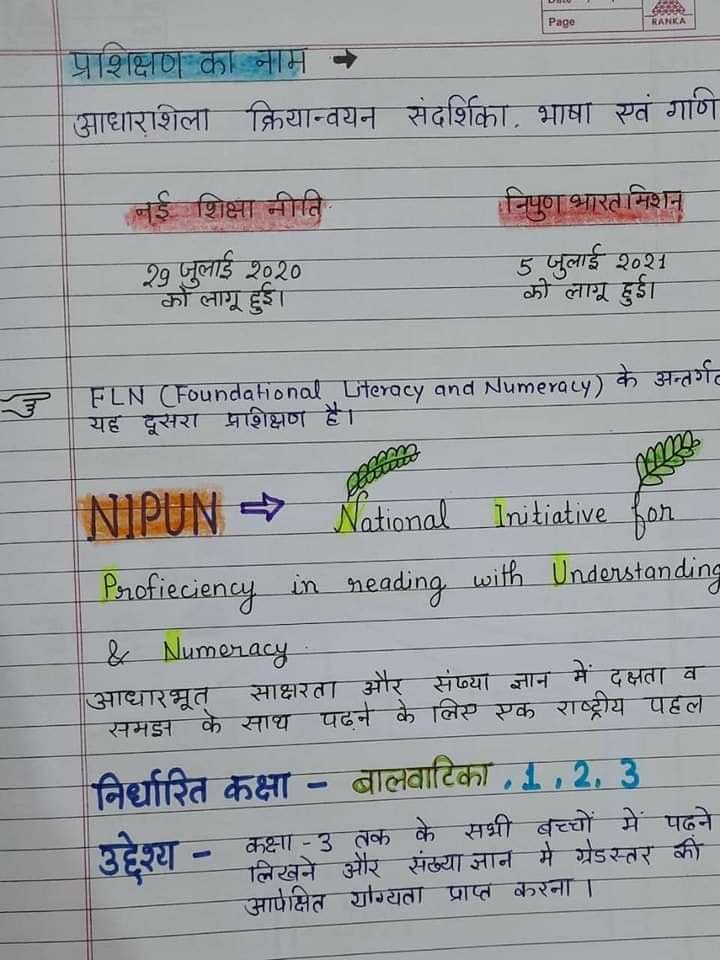 Page
RANKA
प्रशिक्षण का नाम →
आधारशिला क्रियान्वयन संदर्शिका. भाषा एवं गणि
नई शिक्षा नीति
निपुण भारत मिशन
29 जुलाई 2020
को लागू हुई।
5 जुलाई 2021
को लागू हुई।
FLN (Foundational Literacy and Numeracy) के अन्तर्गत
यह दूसरा प्रशिक्षण है।
NIPUN ⇒ National Initiative for
Profieciency in reading with Understanding
& Numeracy.
आधारभूत साक्षरता और संख्या ज्ञान में दक्षता व
समझ के साथ पढ़ने के लिए एक राष्ट्रीय पहल
निर्धारित कक्षा - बालवाटिका , 1 , 2, 3
उद्देश्य - कक्षा -3 तक के सभी बच्चों में पढ़ने
लिखने और संख्या ज्ञान मे ग्रेडस्तर की
आपेक्षित योग्यता प्राप्त करना ।